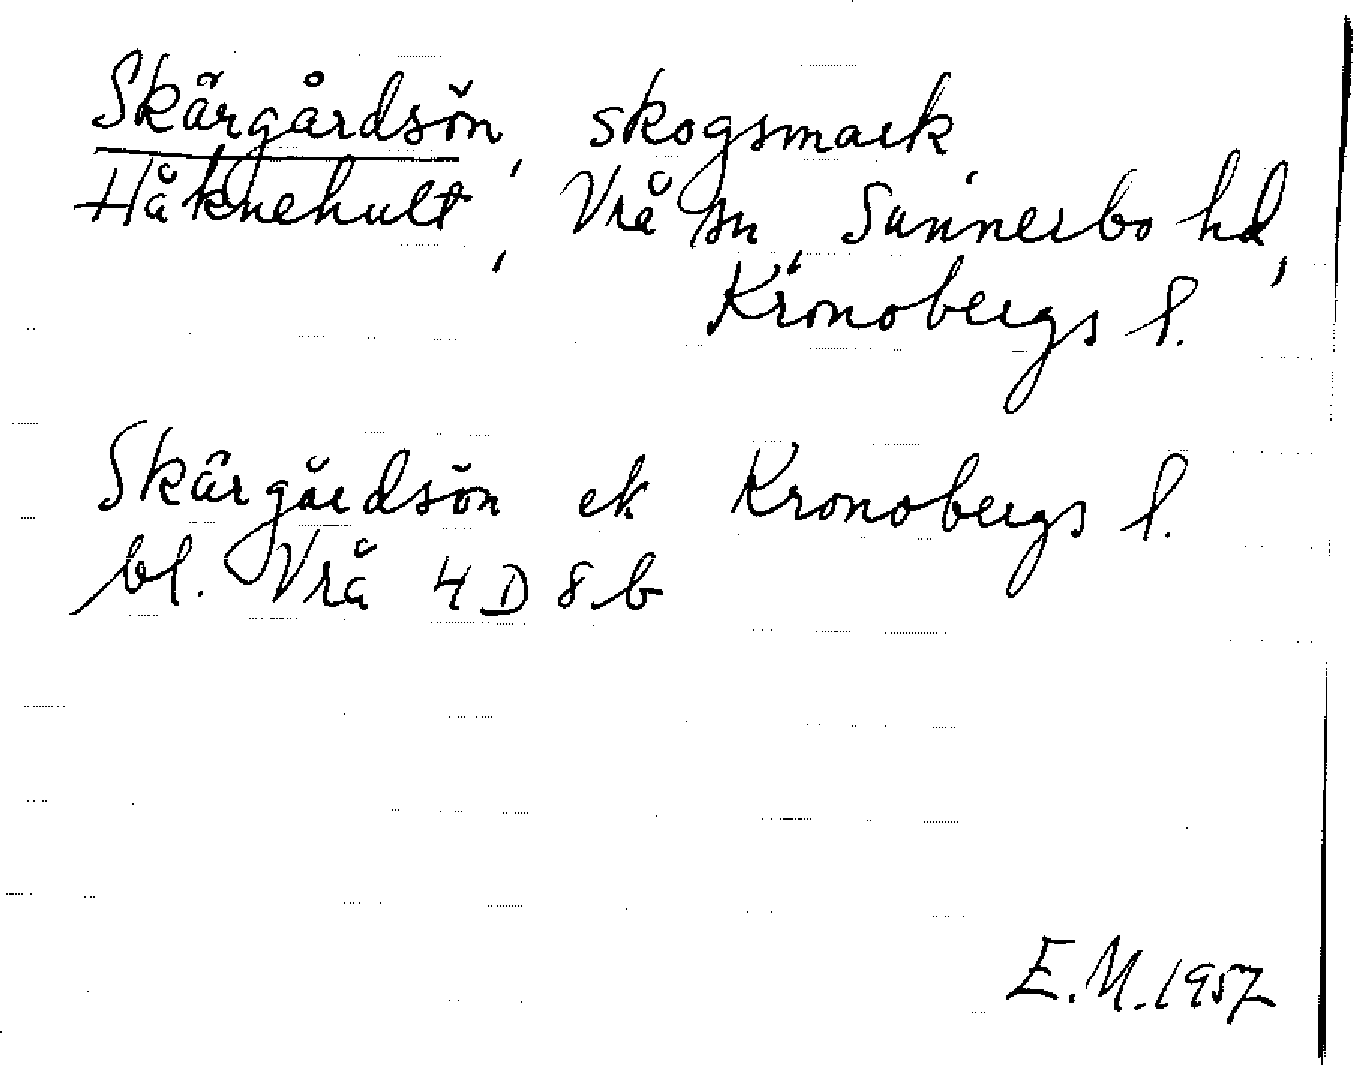 Skärgårdsön, skogsmark,
Håknehult, Vrå sn, Sunnerbo hd,
Kronobergs l.
Skärgårdsön ek Kronobergs l.
bl. Vrå 4 D 8 b
E.M. 1957